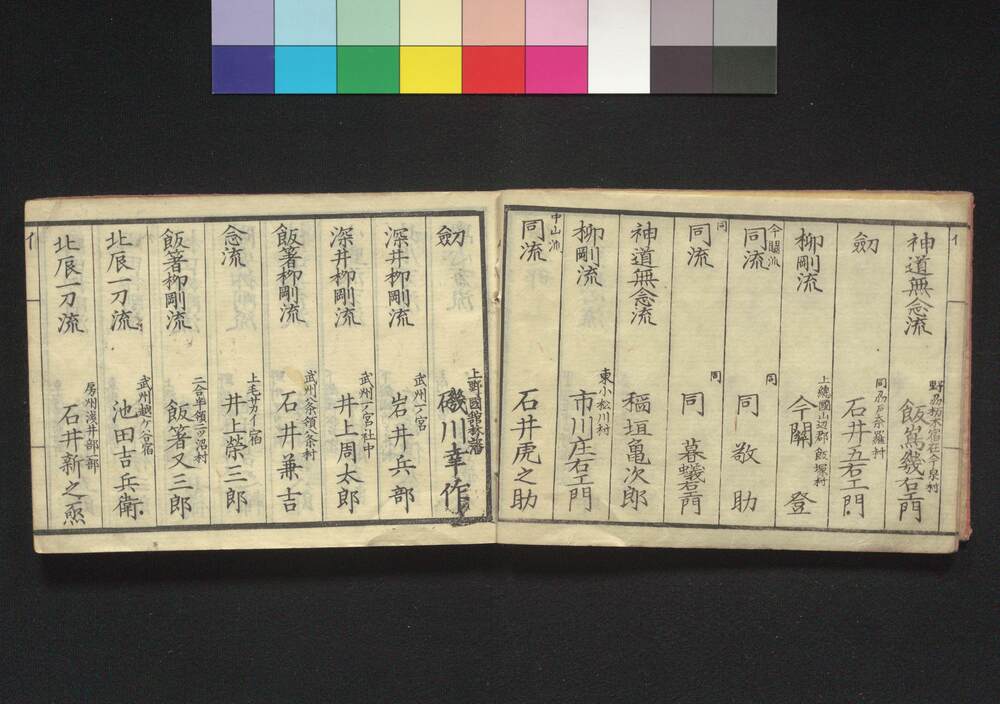 イ
神道無念流
野州栃木宿在今泉村
飯嶌幾右エ門
劔
同 奈羅村
石井五右エ門
柳剛流
上總國山辺郡飯塚村
今關 登
同流
同
同 敬助
同
同流
同
同 暮蟻右エ門
神道無念流
稲垣亀次郎
柳剛流
東小松川村
市川庄右エ門
中山流
同流
石井虎之助
劔
上野國舘林藩
磯川幸作
深井柳剛流
武州一ノ宮
岩井兵部
深井柳剛流
武州一ノ宮社中
井上周太郎
飯箸柳剛流
武州八条領八条村
石井兼吉
念流
上毛サカイ宿
井上榮三郎
飯箸柳剛流
二合半領二ノ沼村
飯箸又三郎
北辰一刀流
武州越ケ谷宿
池田吉兵衛
北辰一刀流
房州浅井部一部
石井新之
イ